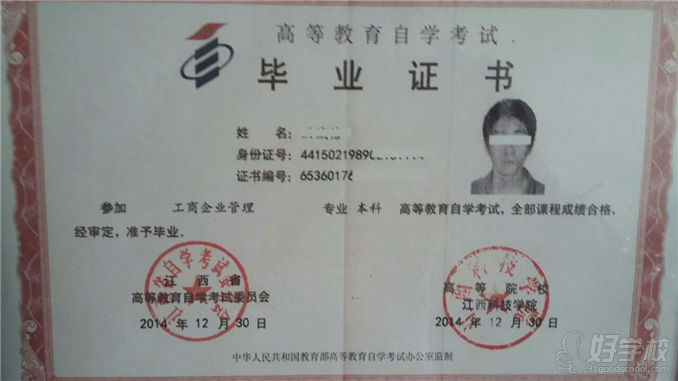 高等教育自学考试
毕业证书
姓 名:
身份证号:
证书编号: 65360176
参加 工商企业管理 专业 本科 高等教育自学考试,全部课程成绩合格,
经审定,准予毕业。
江西省
高等教育自学考试委员会
2014 年 12 月 30 日
高等院校
江西科技学院
2014 年 12 月 30 日
中华人民共和国教育部高等教育自学考试办公室监制
好学校
91goodschool.com